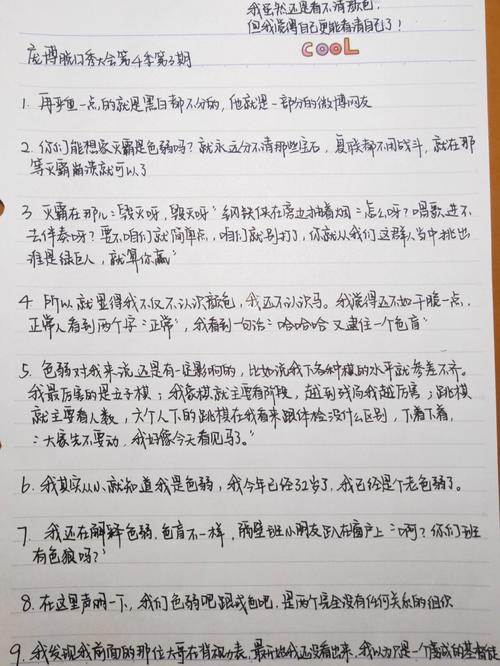 我虽然还是看不清颜色
但我觉得自己更能看清自己了！
COOL
庞博脱口秀大会第4季第3期
1. 再严重一点的就是黑白都不分的，他就是一部分的微博网友
2. 你们能想象灭霸是色弱吗？就永远分不清那些宝石，复联都不用战斗，就在那
等灭霸崩溃就可以了
3 灭霸在那儿："毁灭呀，毁灭呀" 钢铁侠在旁边抽着烟："怎么呀？唱歌进不
去伴奏呀？要不咱们就简单点，咱们就别打了，你就从我们这群人当中挑出
谁是绿巨人，就算你赢"
4 所以就显得我不仅不认识颜色，我还不认识马。我觉得还不如干脆一点，
正常人看到两个字："正常"，我看到一句话："哈哈哈 又逮住一个色盲"
5. 色弱对我来说还是有一定影响的，比如说我下各种棋的水平就参差不齐。
我最厉害的是五子棋；我象棋就主要看阶段，越到残局我越厉害；跳棋
就主要看人数，六个人下的跳棋在我看来跟体检没什么区别，下着下着，
："大家先不要动，我好像今天看见马了。"
6. 我其实从小就知道我是色弱，我今年已经32岁了，我已经是个老色弱了。
7. 我还在解释色弱.色盲不一样，隔壁班小朋友趴在窗户上："啊？你们班
有色狼吗？"
8. 在这里声明一下，我们色弱吧跟戒色吧，是两个完全没有任何关系的组织
9. 我发现我前面的那位大哥在背视力表，最开始我还没看出来，我以为只是一个虔诚的基督徒